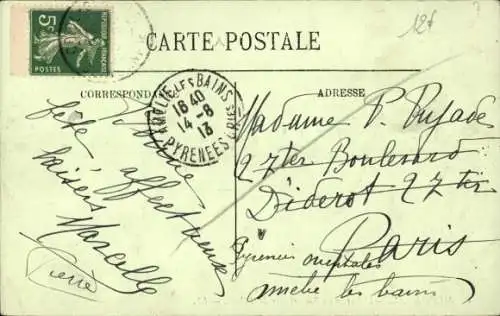 5c
REPUBLIQUE FRANÇAISE
POSTES
12f
CARTE POSTALE
CORRESPONDA
ADRESSE
AMELIE LES BAINS
16 40
14 -8
13
PYRENEES ORles
Bonne
fête affectueux
baisers
Marcelle
Pierre
Madame P. Pujade
27 ter Boulevard
Diderot 27 ter
Paris
Pyrenées orientales
amelie les bains